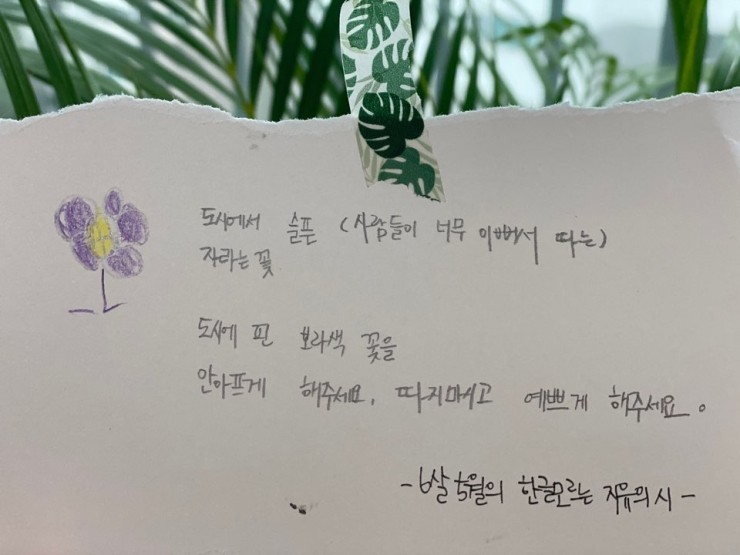 도시에서 슬픈 (사람들이 너무 이뻐서 따는)
자라는 꽃
도시에 핀 보라색 꽃을
안아프게 해주세요, 따지마시고 예쁘게 해주세요.
-6살 5월의 한글모르는 자유의 시-